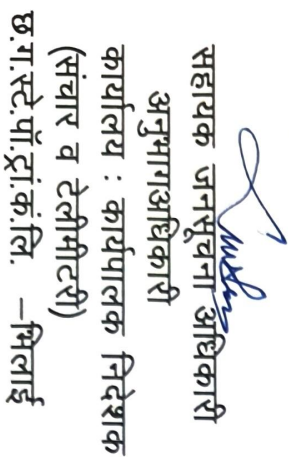 सहायक जनसूचना अधिकारी
अनुभागअधिकारी
कार्यालय : कार्यपालक निदेशक
(संचार व टेलीमीटरी)
छ.ग.स्टे.पॉ.ट्रां.कं.लि. –भिलाई